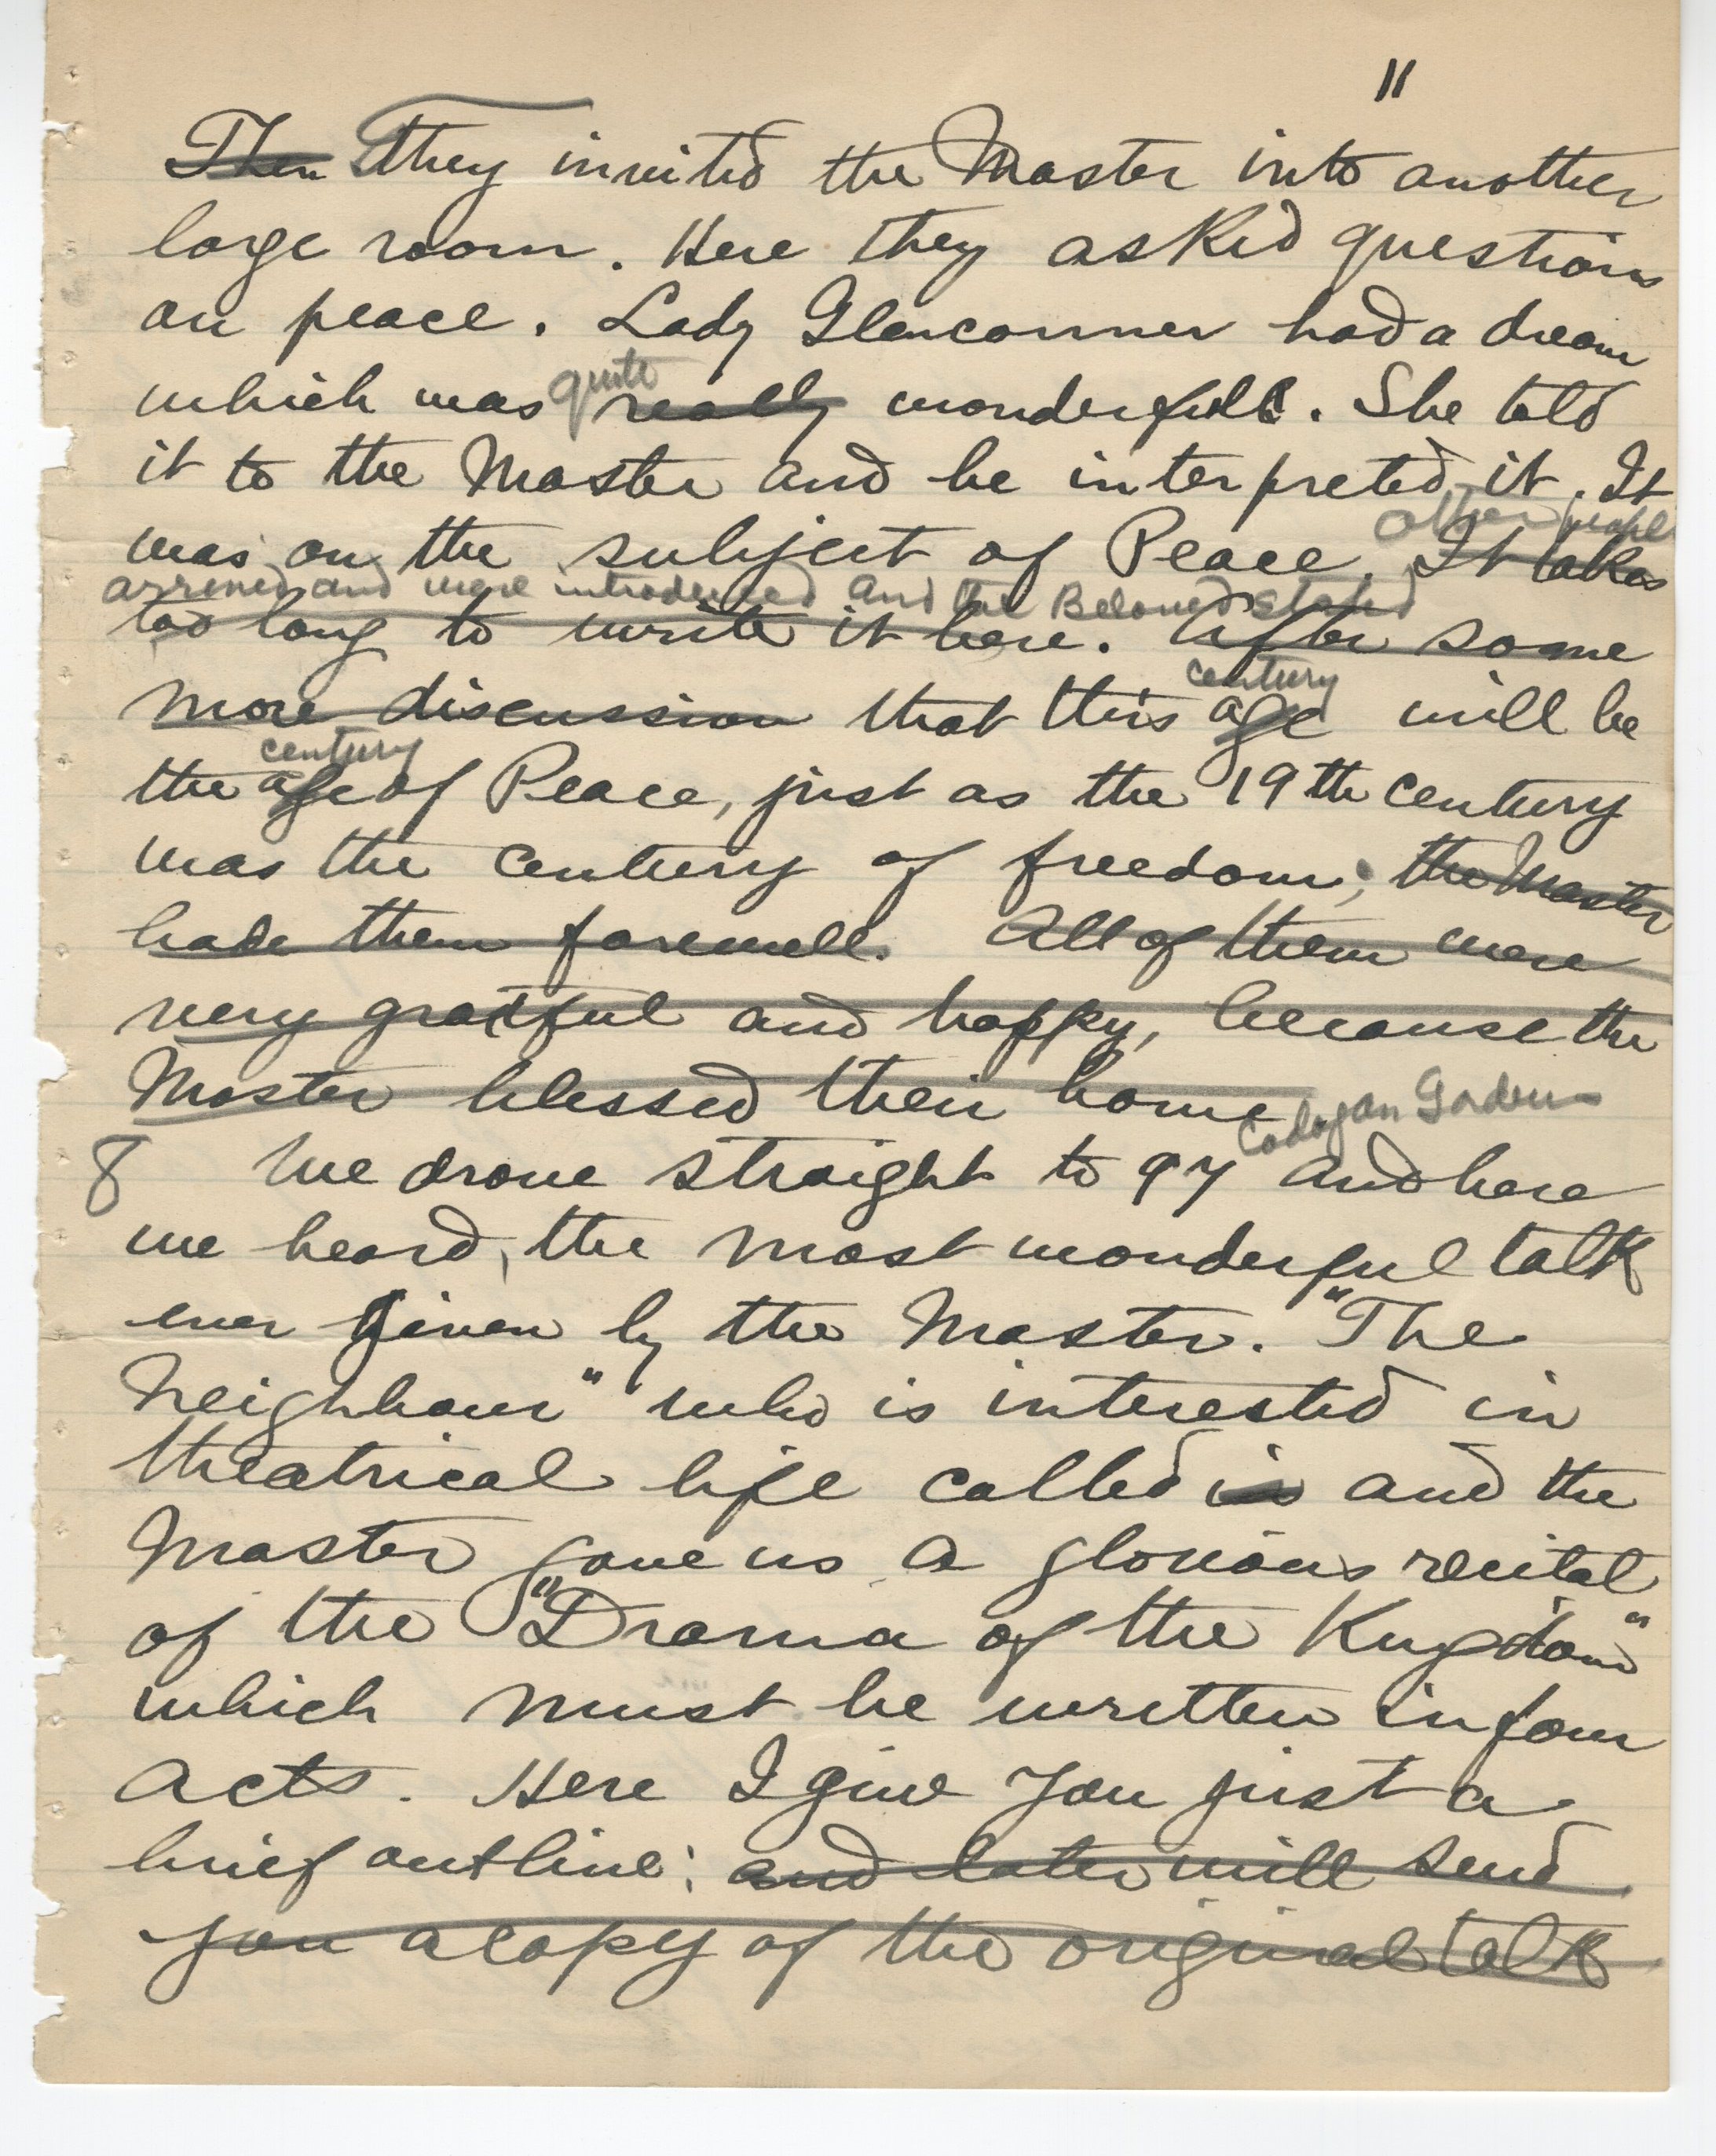 11
Then They invited the Master into another
large room. Here they asked questions
on peace. Lady Glenconner had a dream
quite
which was really wonderful. She told
it to the Master and he interpreted it. It
other people
was on the subject of Peace. It takes
arrived and were introduced and the Beloved stated
too long to write it here. After some
century
more discussion that this age will be
century
the age of Peace, just as the 19th century
was the century of freedom; the Master
bade them farewell. All of them were
very grateful and happy, because the
Master blessed their home
Cadogan Gardens
8 We drove straight to 97 and here
we heard, the most wonderful talk
ever given by the Master. "The
Neighbour" who is interested in
theatrical life called in and the
Master gave us a glorious recital
of the "Drama of the Kingdom"
which must be written in four
acts. Here I give you just a
brief outline: and later will send
you a copy of the original talk